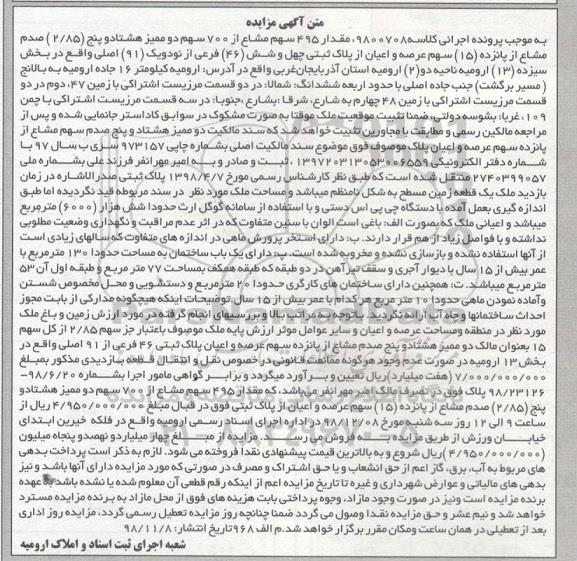 متن آگهی مزایده
به موجب پرونده اجرائی کلاسه ۹۸۰۰۷۰۸، مقدار ۴۹۵ سهم مشاع از ۷۰۰ سهم دو ممیز هشتادو پنج (۲/۸۵) صدم
مشاع از پانزده (۱۵) سهم عرصه و اعیان از پلاک ثبتی چهل و شش (۴۶) فرعی از نودویک (۹۱) اصلی واقع در بخش
سیزده (۱۳) ارومیه ناحیه دو(۲) ارومیه استان آذربایجان‌غربی واقع در آدرس: ارومیه کیلومتر ۱۶ جاده ارومیه به بالانج
( مسیر برگشت) جنب جاده اصلی با حدود اربعه ششدانگ: شمالا: در دو قسمت مرزیست اشتراکی با زمین ۴۷، دوم در دو
قسمت مرزیست اشتراکی با زمین ۴۸ چهارم به شارع، شرقا: بشارع، جنوبا: در سه قسمت مرزیست اشتراکی با چمن
۱۰۹، غربا: بشوسه دولتی، ضمنا تثبیت موقعیت ملک موقتا به صورت مشکوک در سوابق کاداستر جانمایی شده و پس از
مراجعه مالکین رسمی و مطابقت با مجاورین تثبیت خواهد شد که سند مالکیت دو ممیز هشتاد و پنج صدم سهم مشاع از
پانزده سهم عرصه و اعیان پلاک موصوف فوق موضوع سند مالکیت اصلی بشماره چاپی ۹۷۳۱۵۷ سری ب سال ۹۷ با
شماره دفتر الکترونیکی ۱۳۹۷۲۰۳۱۳۰۵۳۰۰۶۵۵۹، ثبت و صادر و به امیر مهر انفر فرزند علی بشماره ملی
۲۷۴۰۳۹۹۰۵۷ منتقل شده است که طبق نظر کارشناس رسمی مورخ ۱۳۹۸/۴/۷ پلاک ثبتی صدر الاشاره در زمان
بازدید ملک یک قطعه زمین مسطح به شکل نامنظم میباشد و مساحت ملک مورد نظر در سند مربوطه قید نگردیده اما طبق
اندازه گیری بعمل آمده با دستگاه جی پی اس دستی و با استفاده از سامانه گوگل ارث حدودا شش هزار (۶۰۰۰) مترمربع
میباشد و اعیانی ملک که بصورت الف: باغی است الوان با سنین متفاوت که در اثر عدم مراقبت و نگهداری وضعیت مطلوبی
نداشته و با فواصل زیاد از هم قرار دارند. ب: دارای استخر پرورش ماهی در اندازه های متفاوت که سالهای زیادی است
از آنها استفاده نشده و بازسازی نشده و مخروبه شده است. پ: دارای یک باب ساختمان به مساحت حدودا ۱۳۰ مترمربع با
عمر بیش از ۱۵ سال با دیوار آجری و سقف تیرآهن در دو طبقه که طبقه همکف بمساحت ۷۷ متر مربع و طبقه اول آن ۵۳
مترمربع میباشد. ت: همچنین دارای ساختمان های کارگری حدودا ۲۰ مترمربع و دستشویی و محل مخصوص شستن
وآماده نمودن ماهی حدودا ۱۰ متر مربع هر کدام با عمر بیش از ۱۵ سال توضیحات اینکه هیچگونه مدارکی از بابت مجوز
احداث ساختمانها وچاه آب ارائه نگردید با توجه به مراتب بالا و بررسیهای انجام گرفته در مورد ارزش زمین و باغ ملک
مورد نظر در منطقه ومساحت عرصه و اعیان و سایر عوامل موثر ارزش پایه ملک موصوف باعتبار جز سهم ۲/۸۵ از کل سهم
۱۵ بعنوان مالک دو ممیز هشتادو پنج صدم مشاع از پانزده سهم عرصه و اعیان پلاک ثبتی ۴۶ فرعی از ۹۱ اصلی واقع در
بخش ۱۳ ارومیه در صورت عدم وجود هرگونه ممانعت قانونی در خصوص نقل و انتقال قطعه بازدیدی مذکور بمبلغ
۷/۰۰۰/۰۰۰/۰۰۰ (هفت میلیارد) ریال تعیین و برآورد میگردد و برابر گواهی مامور اجرا بشماره ۹۸/۶/۲۰-
۹۸/۲۳۱۲۶ پلاک فوق در تصرف مالک امیر مهر انفر می باشد، که مقدار ۴۹۵ سهم مشاع از ۷۰۰ سهم دو ممیز هشتادو
پنج (۲/۸۵) صدم مشاع از پانزده (۱۵) سهم عرصه و اعیان از پلاک ثبتی فوق در قبال مبلغ ۴/۹۵۰/۰۰۰/۰۰۰ ریال از
ساعت ۹ الی ۱۲ روز سه شنبه مورخ ۹۸/۱۲/۰۸ در اداره اجرای اسناد رسمی ارومیه واقع در فلکه خیرین ابتدای
خیابان ورزش از طریق مزایده به فروش می رسد. مزایده از مبلغ چهار میلیاردو نهصدو پنجاه میلیون
(۴/۹۵۰/۰۰۰/۰۰۰)ریال شروع و به بالاترین قیمت پیشنهادی نقدا فروخته می شود. لازم به ذکر است پرداخت بدهی
های مربوط به آب، برق، گاز اعم از حق انشعاب و یا حق اشتراک و مصرف در صورتی که مورد مزایده دارای آنها باشد و نیز
بدهی های مالیاتی و عوارض شهرداری و غیره تا تاریخ مزایده اعم از اینکه رقم قطعی آن معلوم شده یا نشده باشد به عهده
برنده مزایده است ونیز در صورت وجود مازاد، وجوه پرداختی بابت هزینه های فوق از محل مازاد به برنده مزایده مسترد
خواهد شد و نیم عشر و حق مزایده نقدا وصول می گردد ضمنا چنانچه روز مزایده تعطیل رسمی گردد، مزایده روز اداری
بعد از تعطیلی در همان ساعت ومکان مقرر برگزار خواهد شد.م الف ۹۶۸ تاریخ انتشار: ۹۸/۱۱/۸
شعبه اجرای ثبت اسناد و املاک ارومیه